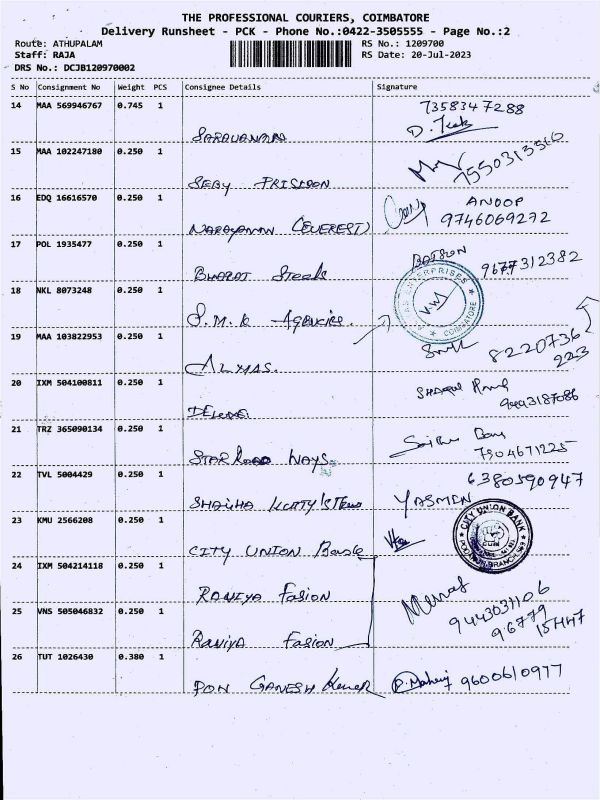 THE PROFESSIONAL COURIERS, COIMBATORE
Delivery Runsheet - PCK - Phone No.:0422-3505555 - Page No.:2
Route: ATHUPALAM RS No.: 1209700
Staff: RAJA RS Date: 20-Jul-2023
DRS No.: DCJB120970002
S No Consignment No Weight PCS Consignee Details Signature
14 MAA 569946767 0.745 1 7358347288
SARAVANAN
15 MAA 102247180 0.250 1 7550313560
SEBY PRISLOON
16 EDQ 16616570 0.250 1 ANOOP
NARAYANAN (EVEREST) 9746069272
17 POL 1935477 0.250 1 9677312382
BHARAT Steels
18 NKL 8073248 0.250 1 ENTERPRISES COIMBATORE
S.M.K AGENCIES.
19 MAA 103822953 0.250 1 8220736
ALMAS. 223
20 IXM 504100811 0.250 1
9443187086
21 TRZ 365090134 0.250 1
STAR Road WAYS 7904671225
22 TVL 5004429 0.250 1 6380590947
YASMEN
23 KMU 2566208 0.250 1 CITY UNION BANK
CITY UNION Bank
24 IXM 504214118 0.250 1
RANIYA FASION
25 VNS 505046832 0.250 1 9443031106
Raniya Fasion 96779 15447
26 TUT 1026430 0.380 1 9600610977
PON GANESH Kumar